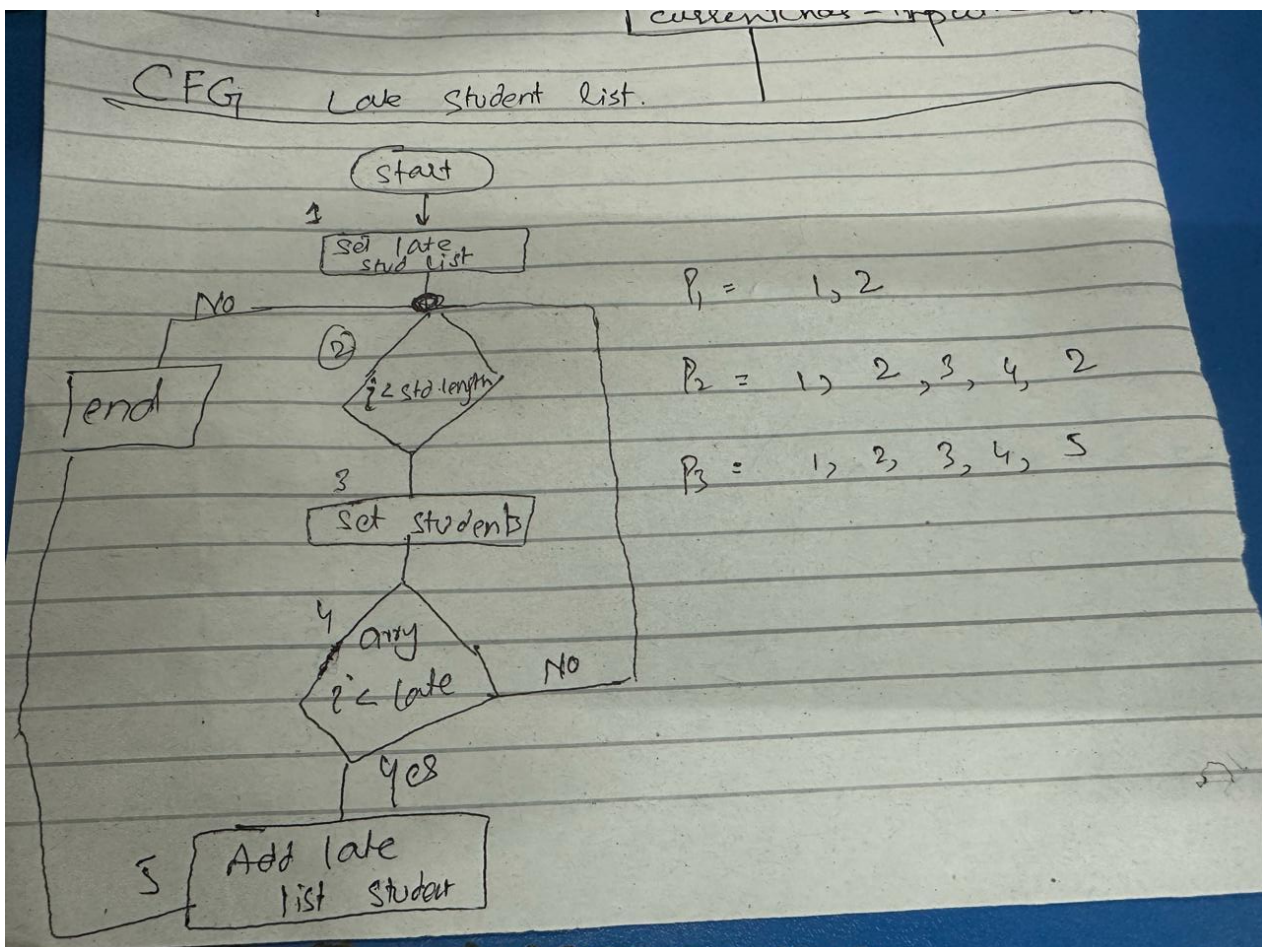 CFG Late Student list.
start
1
Set late
stud list
No
2
i < std.length
end
3
Set students
4
arry
i < late
No
Yes
5
Add late
list Student
P1 = 1, 2
P2 = 1, 2, 3, 4, 2
P3 = 1, 2, 3, 4, 5